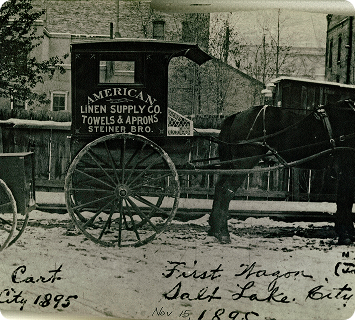 AMERICAN
LINEN SUPPLY CO.
TOWELS & APRONS
STEINER BRO.
Cart
City 1895
First Wagon
Salt Lake City
Nov 15 1895